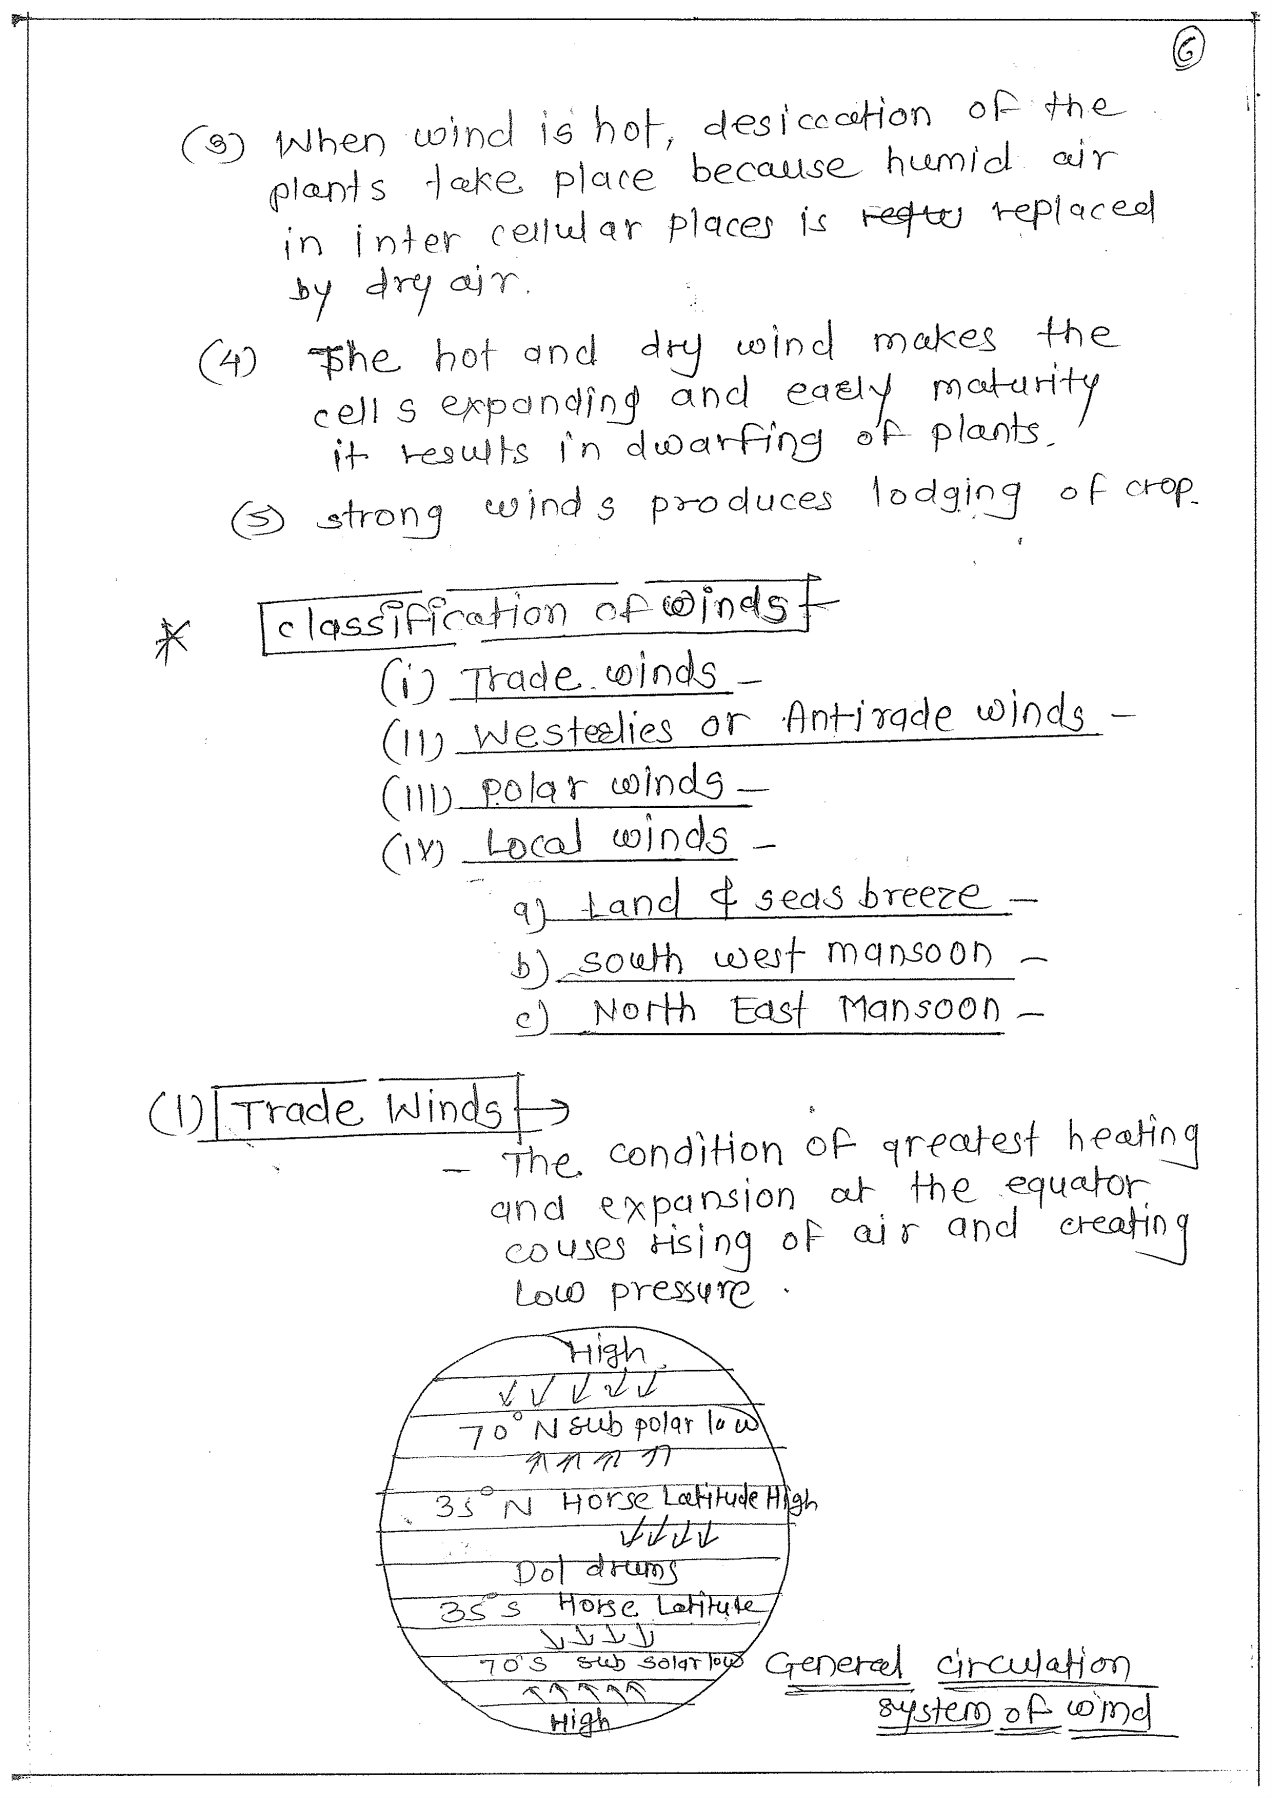 6
(3) When wind is hot, desiccation of the
plants take place because humid air
in inter cellular places is replaced
by dry air.
(4) The hot and dry wind makes the
cells expanding and early maturity
it results in dwarfing of plants.
(5) strong winds produces lodging of crop.
* classification of winds
(i) Trade winds -
(II) Westerlies or Antirade winds -
(III) Polar winds -
(IV) Local winds -
a) Land & seas breeze -
b) south west mansoon -
c) North East Mansoon -
(1) Trade Winds →
- The condition of greatest heating
and expansion at the equator
couses rising of air and creating
Low pressure.
High
70°N sub polar low
35°N Horse Latitude High
Dol drums
35°S Horse Latitute
70°S sub solar low
High
General circulation
system of wind